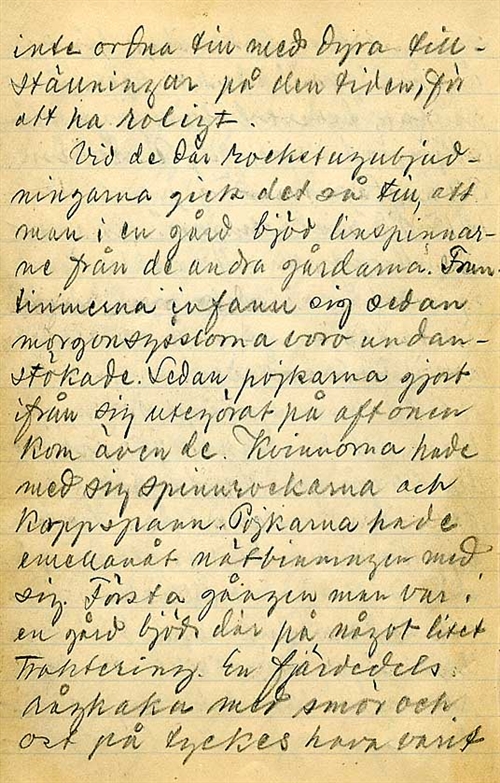 inte ordna till med dyra till-
ställningar på den tiden, för
att ha roligt.
Vid de där rockstugubjud-
ningarna gick det så till, att
man i en gård bjöd linspinnar-
ne från de andra gårdarna. Frun-
timmerna infann sig sedan
morgonsysslorna voro undan-
stökade. Sedan pojkarna gjort
ifrån sig utegörat på aftonen
kom även de. Kvinnorna hade
med sig spinnrockarna och
koppspann. Pojkarna hade
emellanåt nätbinningen med
sig. Första gången man var i
en gård bjöds där på något litet
traktering. En fjärdedels
rågkaka med smör och
ost på tyckes hava varit